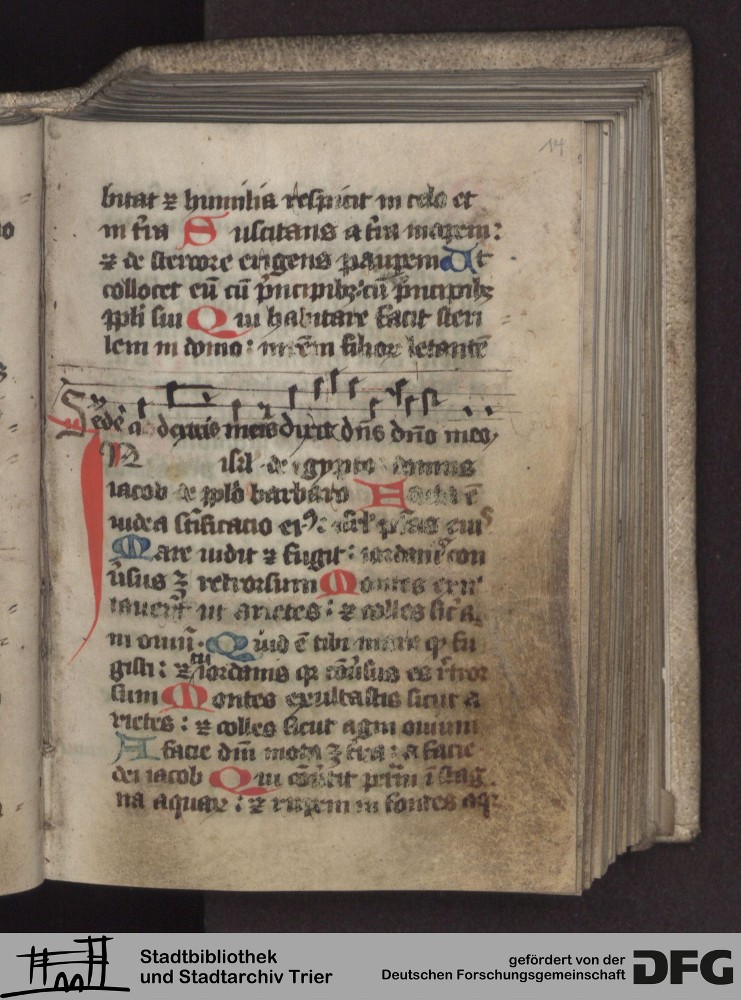 14
bitat ⁊ humilia respicit in celo et
in t̄ra Suscitans a t̄ra inopem:
⁊ de stercore erigens pauperem Ut
collocet eū cū p̄ncipibꝫ: cū p̄ncipibꝫ
ppl̄i sui Qui habitare facit steri
lem in domo: m̄rem filioꝝ letantē
Sede a dextris meis dixit dn̄s dn̄o meo
IN isrl̄ de egypto domus
iacob de pplo barbaro Facta ē
iudea sc̄ificatio eiꝰ: isrl̄ p̄tas eiꝰ
Mare uidit ⁊ fugit: iordanis con
u̓sus ꝫ retrorsum Montes exul
tauer̄t ut arietes: ⁊ colles sic̄ a
ni ouiū. Quid ē tibi mare qꝫ fu
gisti: ⁊ tu iordanis qꝫ cōu̓sus es r̓tror
sum Montes exultastis sicut a
rietes: ⁊ colles sicut agni ouium
A facie dn̄i mota ꝫ t̄ra: a facie
dei iacob Qui cōu̓tit petrā ī stag
na aquaꝝ: ⁊ rupem in fontes aqꝫ
Stadtbibliothek
und Stadtarchiv Trier
gefördert von der
Deutschen Forschungsgemeinschaft
DFG